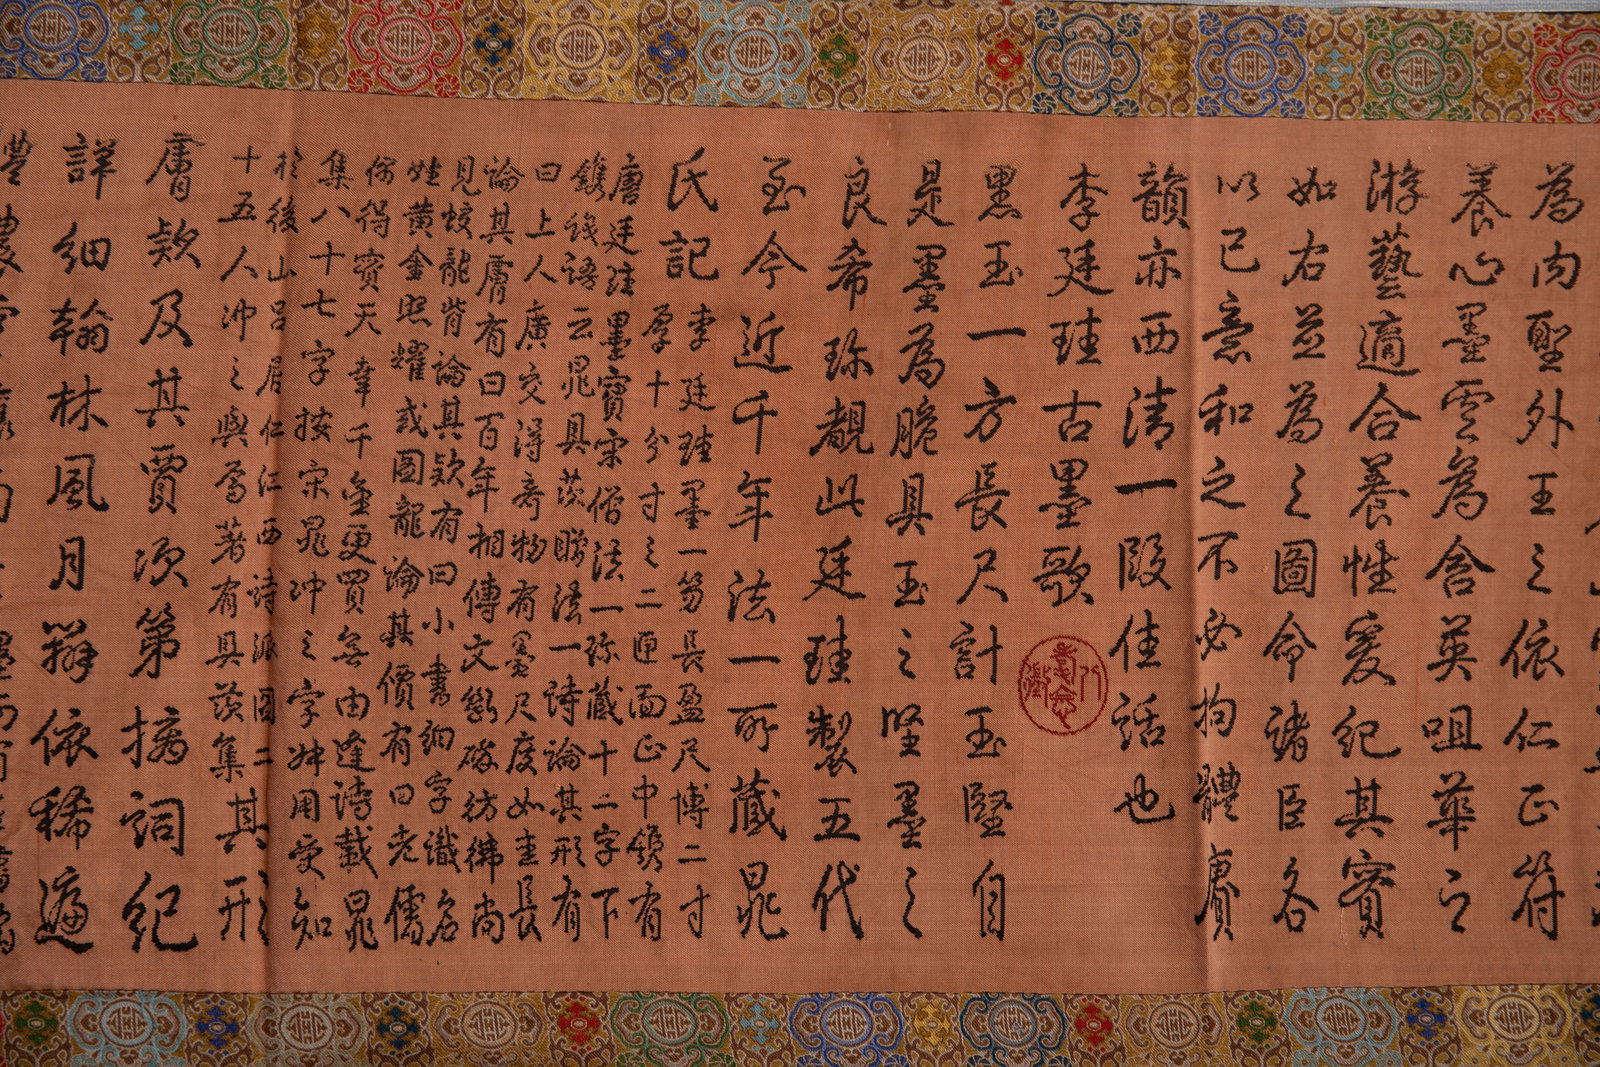 為內聖外王之依仁正符
養心墨雲為含英咀華之
游藝適合養性爰紀其實
如右並為之圖命諸臣各
以己意和之不必拘體賡
韻亦西清一段佳話也
李廷珪古墨歌
黑玉一方長尺計玉堅自
是墨為脆具玉之堅墨之
良希珍覩此廷珪製五代
至今近千年法一所藏晁
氏記
李廷珪墨一笏長盈尺博二寸
厚十分寸之二匣面正中鐫有
唐廷珪墨寶宋僧法一珍藏十二字下
鐫錢語云晁具茨贈法一詩論其形有
曰上人廣交得奇物有墨尺度如圭長
論其膚有曰百年相傳文斷碎彷彿尚
見蛟龍背論其款有曰小書細字識名
姓黃金照耀或圖龍論其價有曰老儒
倘得寶天
韋千金更買無由逢詩載晁
集八十七字按宋晁沖之字姝用受知
於後山呂居仁江西詩派圖二
十五人沖之與焉著有具茨集其形
膚款及其賈次第摛詞紀
詳細翰林風月辨依稀適